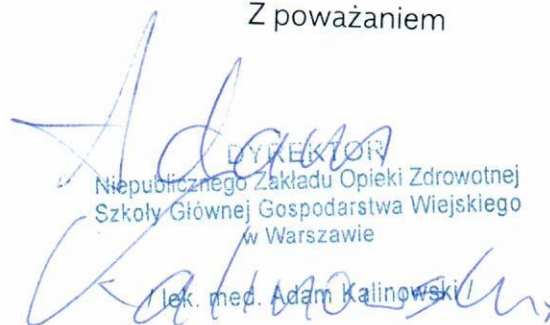 Z poważaniem
Adam
DYREKTOR
Niepublicznego Zakładu Opieki Zdrowotnej
Szkoły Głównej Gospodarstwa Wiejskiego
w Warszawie
Kalinowski
/ lek. med. Adam Kalinowski /